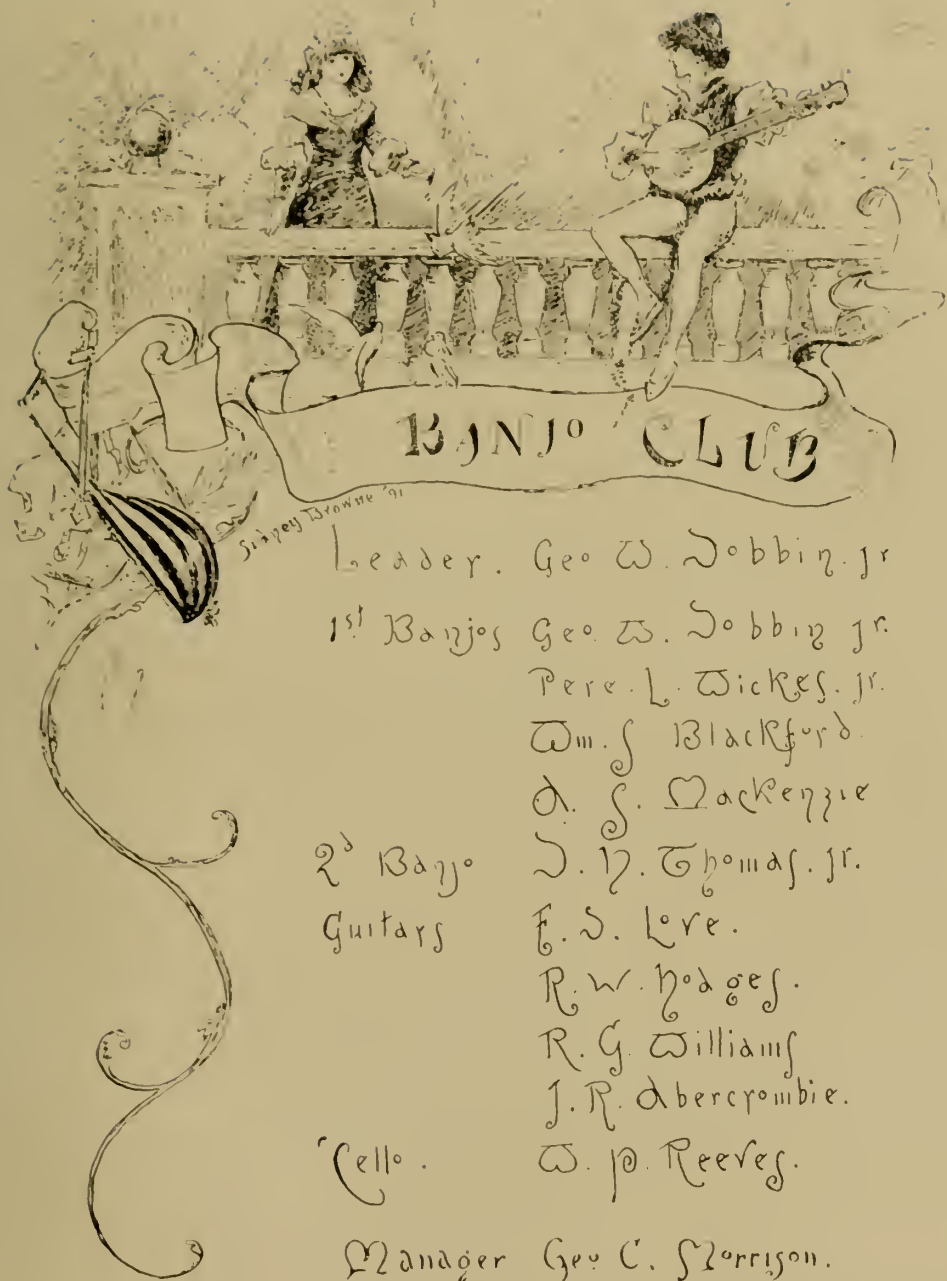 BANJO CLUB
Sidney Browne '91
Leader. Geo W. Dobbin. jr
1st Banjos Geo. W. Dobbin jr.
Pere. L. Wickes. jr.
Wm. S Blackford.
A. S. Mackenzie
2d Banjo D. H. Thomas. jr.
Guitars F. D. Love.
R. W. Hodges.
R. G. Williams
J. R. Abercrombie.
'Cello. W. P. Reeves.
Manager Geo C. Morrison.